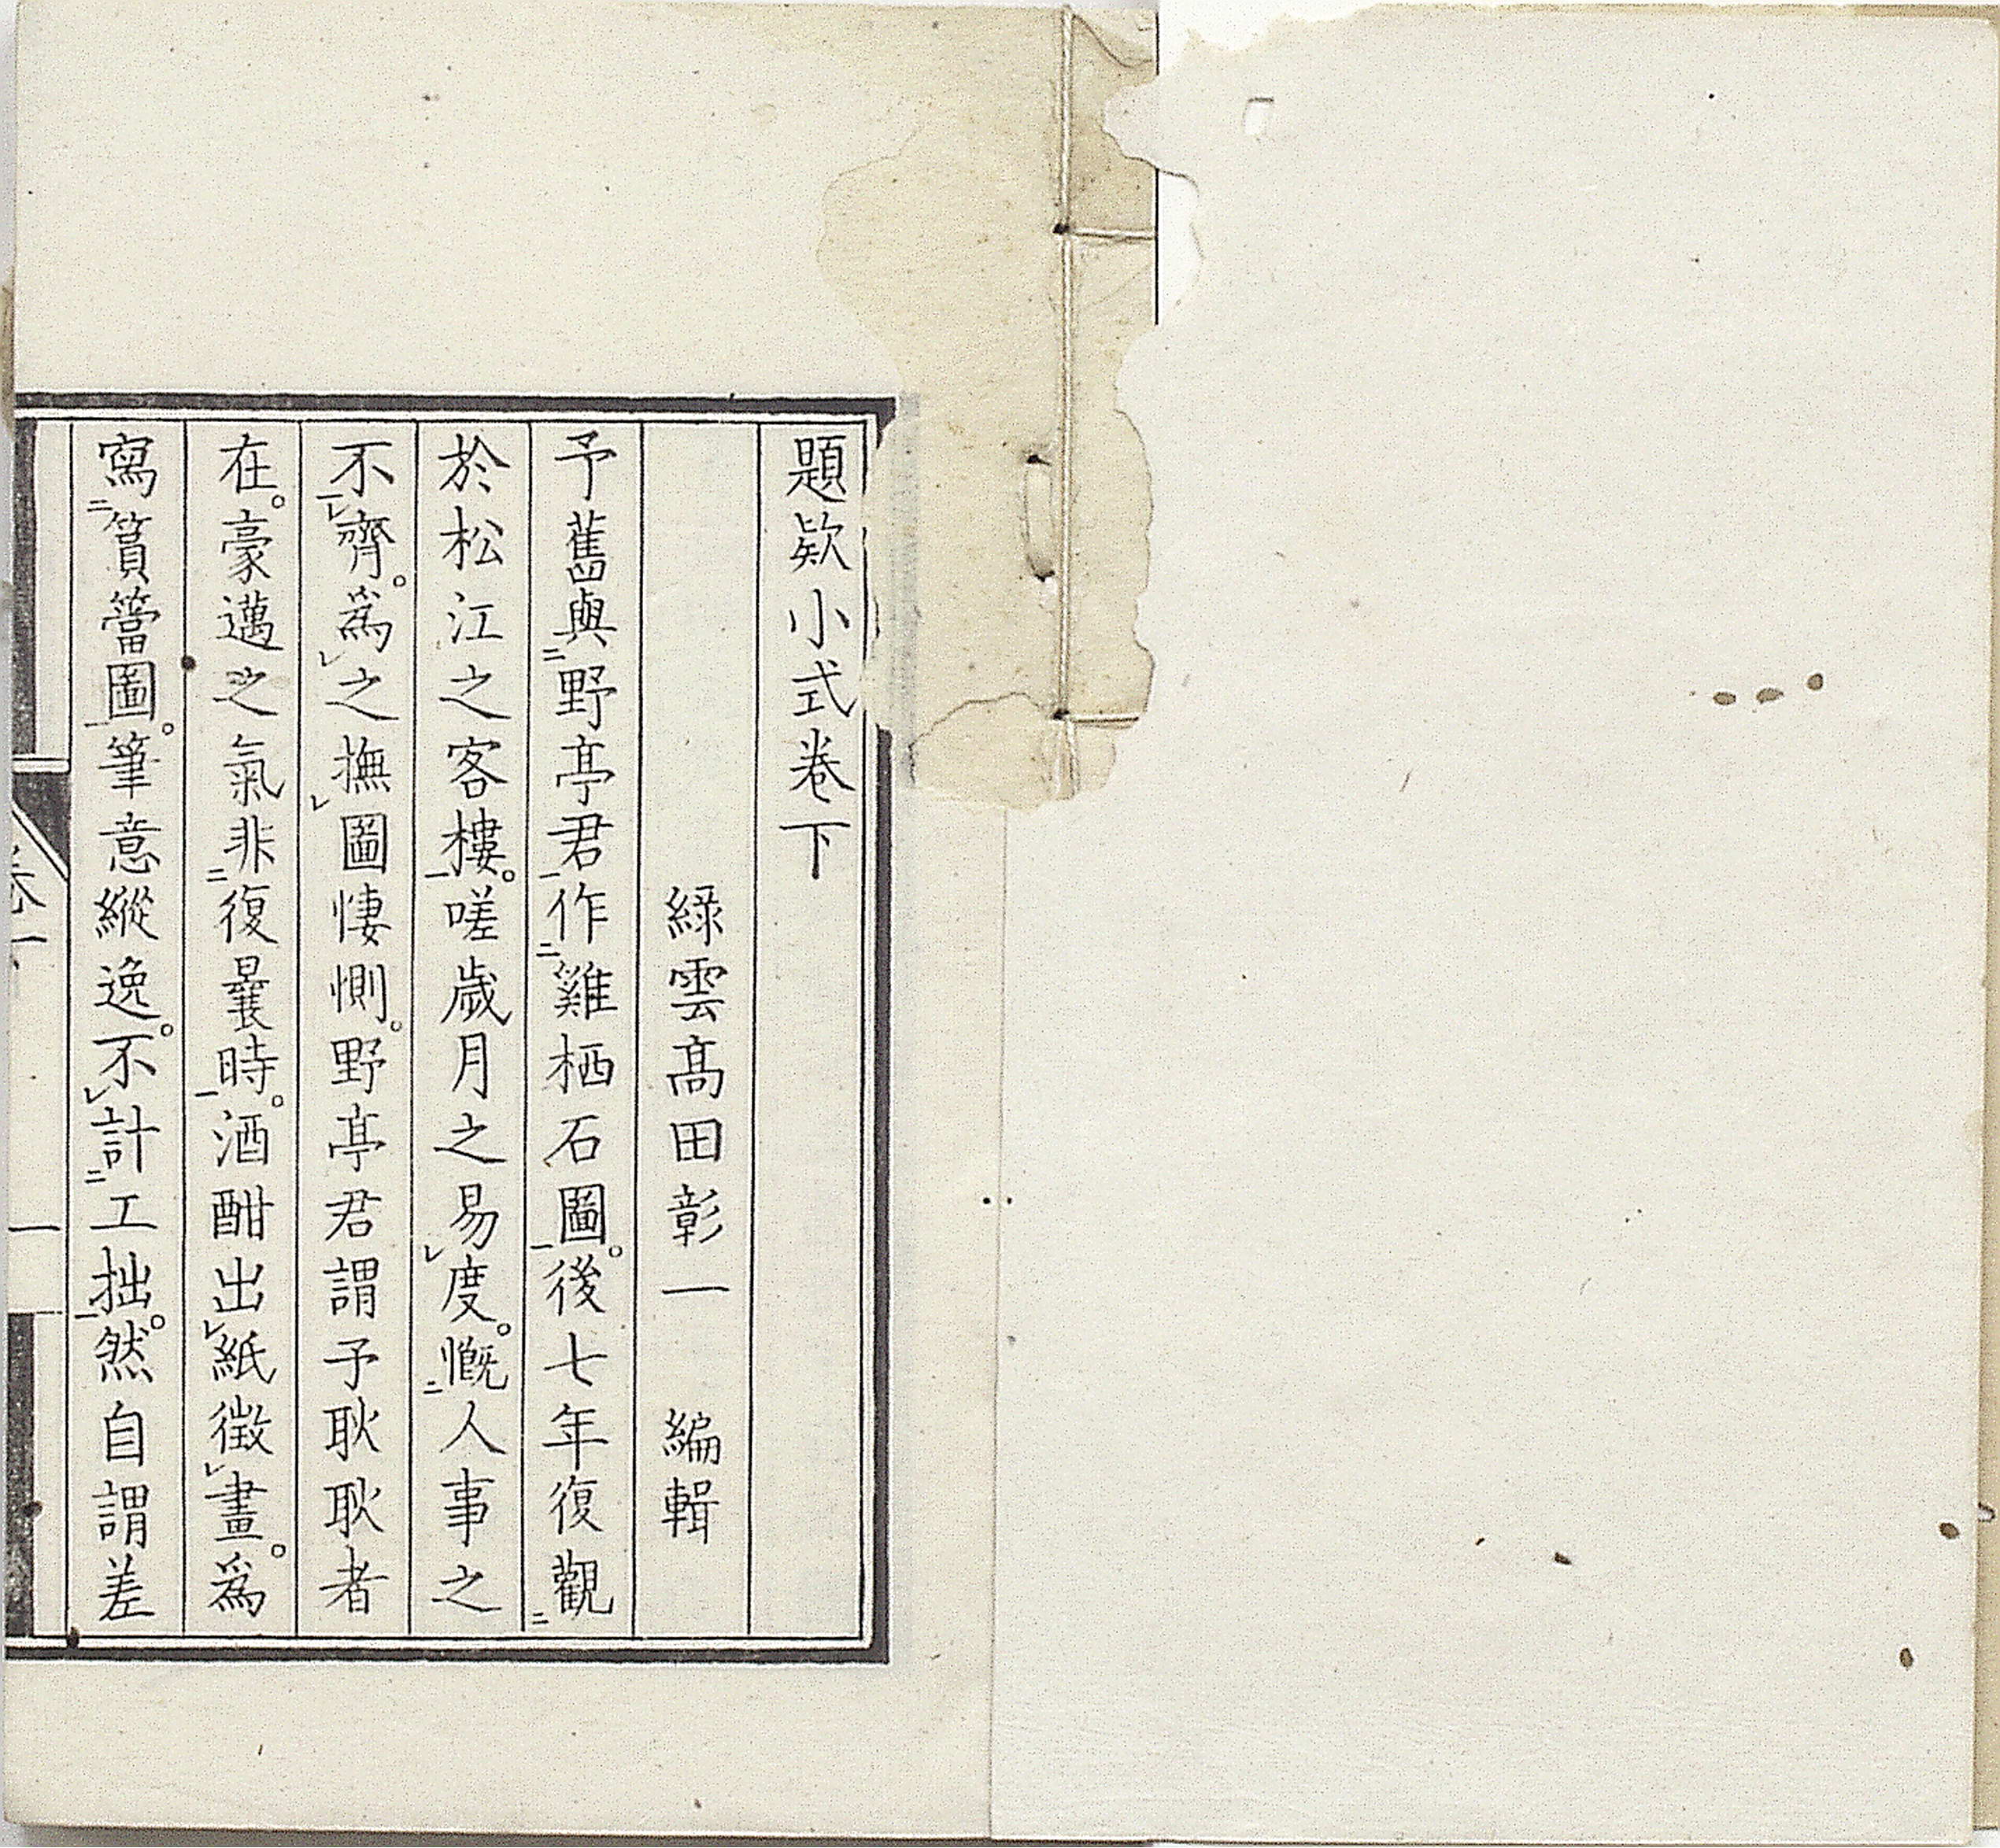 題欵小式卷下
綠雲髙田彰一　編輯
予舊與野亭君作雞栖石圖。後七年復觀
於松江之客樓。嗟歲月之易度。慨人事之
不齊。爲之撫圖悽惻。野亭君謂予耿耿者
在。豪邁之氣非復曩時。酒酣出紙徵畫。爲
寫篔簹圖。筆意縱逸。不計工拙。然自謂差
一